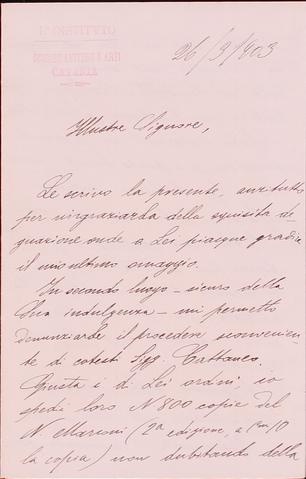 L'ISTITUTO
SCIENZE LETTERE E ARTI
CATANIA
26/9/903
Illustre Signore,
Le scrivo la presente, anzitutto
per ringraziarla della squisita de
gnazione onde a Lei piacque gradire
il mio ultimo omaggio.
In secondo luogo - sicuro della
Sua indulgenza - mi permetto
denunziarle il procedere sconvenien
te di cotesti Sigg. Cattaneo.
Giusta i di Lei ordini, io
spedii loro N 800 copie del
N. Marconi (2a edizione, a Cmi 10
la copia) non dubitando della